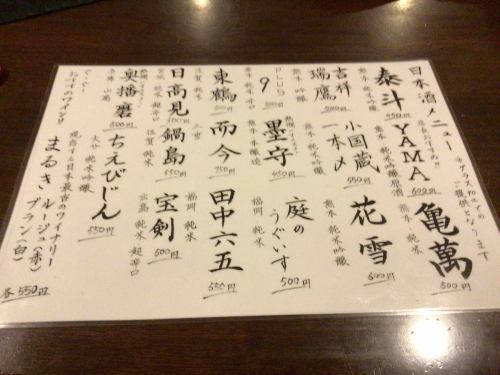 日本酒メニュー
※グラス90㏄での
ご提供となります
泰斗
熊本 純米吟醸
550円
YAMA
600円
亀萬
熊本 純米
500円
吉祥
瑞鷹
熊本 吟醸
500円
小国蔵
一本〆
熊本 純米吟醸
550円
花雪
熊本 純米吟醸
600円
PLUS
9
熊本 純米 辛口
墨守
450円
庭の
うぐいす
福岡 純米
500円
東鶴
佐賀 純米
而今
三重
750円
田中六五
福岡 純米
550円
日高見
宮城 純米 超辛口
500円
鍋島
佐賀 純米
550円
宝剣
広島 純米 超辛口
500円
奥播磨
兵庫 山廃
500円
ちえびじん
大分 純米吟醸
550円
おすすめワイン
現存する日本最古のワイナリー
まるき ルージュ(赤)
ブラン(白)
各550円